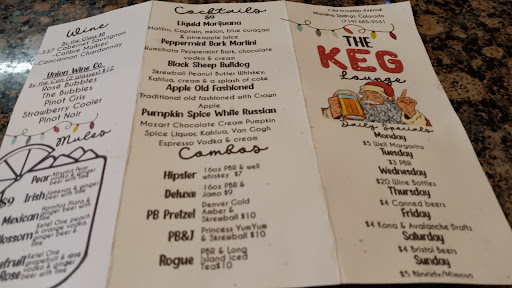 Wine
By the Glass $8
-337 Cabernet Sauvignon
-Calibre Malbec
-Concannon Chardonnay
Union Wine Co.
By the Can (2 glasses) $12
Rose Bubbles
The Bubbles
Pinot Gris
Strawberry Cooler
Pinot Noir
Mules
$9
Pear
Absolut Pear
vodka & ginger
beer with lime
Irish
Jameson & ginger
beer with lime
Mexican
Hornitos Plata &
ginger beer with lime
Blossom
Ketel One peach
& orange vodka,
ginger beer &
lime
Grapefruit
Rose
Ketel One
grapefruit & rose
vodka & ginger
beer with lime
Cocktails
$9
Liquid Marijuana
Malibu, Captain, melon, blue curaçao
& pineapple juice
Peppermint Bark Martini
Rumchata Peppermint bark, chocolate
vodka & cream
Black Sheep Bulldog
Skrewball Peanut Butter Whiskey,
Kahlua, cream & a splash of coke
Apple Old Fashioned
Traditional old fashioned with Crown
Apple
Pumpkin Spice White Russian
Mozart Chocolate Cream Pumpkin
Spice Liquor, Kahlua, Van Gogh
Espresso Vodka & cream
Combos
Hipster
16oz PBR & well
whiskey $7
Deluxe
16oz PBR &
Jamo $9
PB Pretzel
Denver Gold
Amber &
Skrewball $10
PB&J
Princess YumYum
& Skrewball $10
Rogue
PBR & Long
Island Iced
Tea$10
730 Manitou Avenue
Manitou Springs, Colorado
(719) 685-9531
THE
KEG
Lounge
Daily Specials
Monday
$5 Well Margarita
Tuesday
$3 PBR
Wednesday
$20 Wine Bottles
Thursday
$4 Canned beers
Friday
$4 Kona & Avalanche Drafts
Saturday
$4 Bristol Beers
Sunday
$5 Bloody/Mimosa